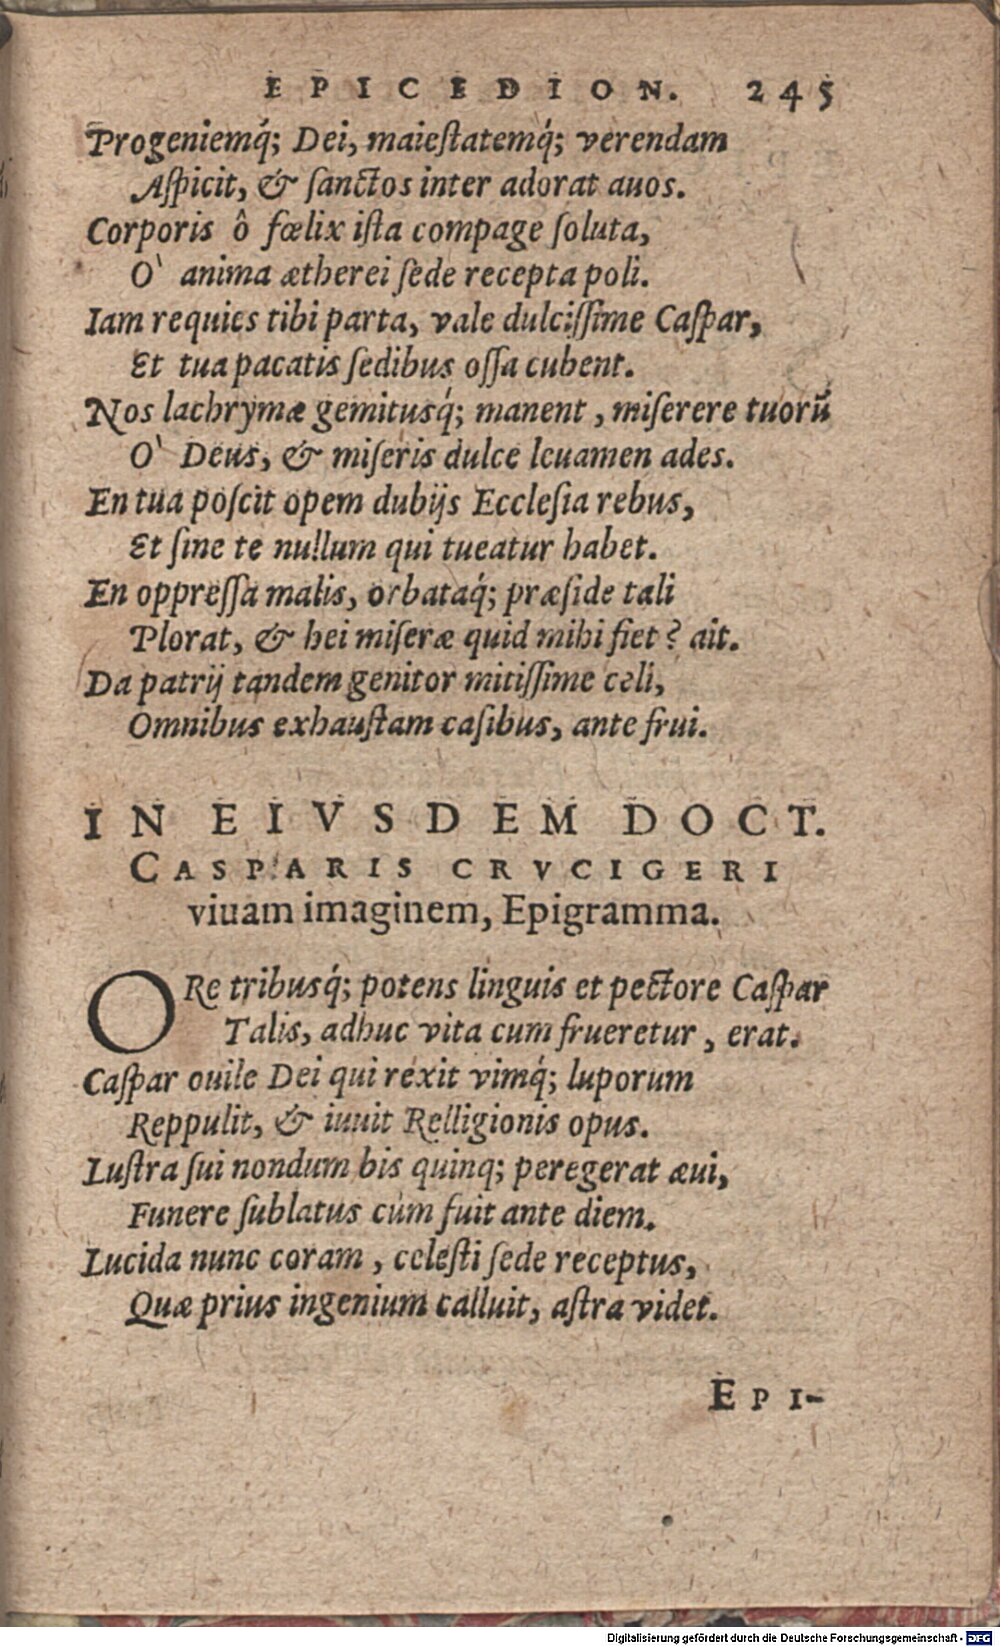 EPICEDION. 245
Progeniemq́; Dei, maieſtatemq́; verendam
Aſpicit, & ſanctos inter adorat auos.
Corporis ô fœlix iſta compage ſoluta,
O' anima ætherei ſede recepta poli.
Iam requies tibi parta, vale dulciſſime Caſpar,
Et tua pacatis ſedibus oſſa cubent.
Nos lachrymæ gemitusq́; manent, miſerere tuorũ
O' Deus, & miſeris dulce leuamen ades.
En tua poſcit opem dubijs Eccleſia rebus,
Et ſine te nullum qui tueatur habet.
En oppreſſa malis, orbataq́; præſide tali
Plorat, & hei miſeræ quid mihi fiet? ait.
Da patrij tandem genitor mitiſſime celi,
Omnibus exhauſtam caſibus, ante frui.
IN EIVSDEM DOCT.
CASPARIS CRVCIGERI
viuam imaginem, Epigramma.
ORe tribusq́; potens linguis et pectore Caſpar
Talis, adhuc vita cum frueretur, erat.
Caſpar ouile Dei qui rexit vimq́; luporum
Reppulit, & iuuit Relligionis opus.
Luſtra ſui nondum bis quinq; peregerat æui,
Funere ſublatus cùm fuit ante diem.
Lucida nunc coram, celeſti ſede receptus,
Quæ prius ingenium calluit, aſtra videt.
EPI-
Digitalisierung gefördert durch die Deutsche Forschungsgemeinschaft - DFG